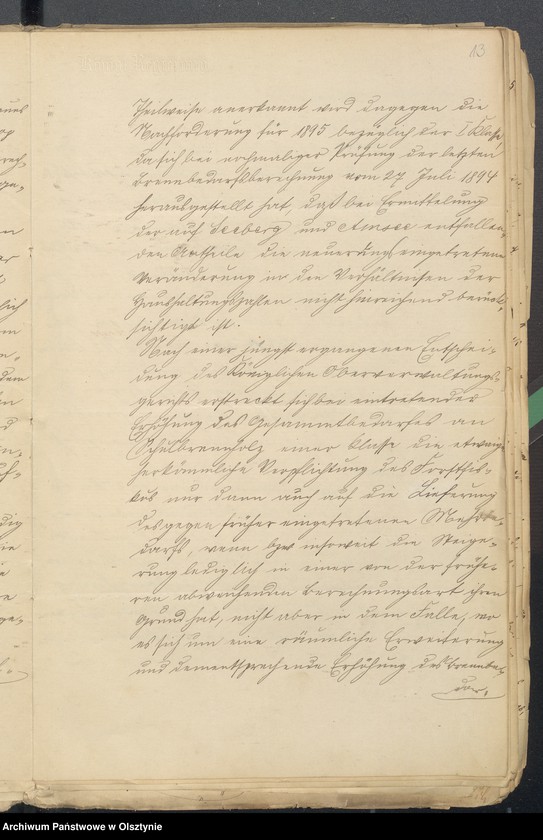 13
Theilweise anerkannt wird dagegen die
Nachforderung für 1895 bezüglich der I Klasse,
da sich bei nochmaliger Prüfung der letzten
Brennbedarfsberechnung vom 27 Juli 1894
herausgestellt hat, daß bei Ermittelung
der auf Seeberg und Amsee entfallen-
den Antheile die neuerdings eingetretene
Veränderung in den Verhältnissen der
Haushaltungszahlen nicht hinreichend berück-
sichtigt ist.
Nach einer jüngst ergangenen Entschei-
dung des Königlichen Oberverwaltungs-
gerichts erstreckt sich bei eintretender
Erhöhung des Gesammtbedarfes an
Schulbrennholz einer Klasse die etwaige
herkömmliche Verpflichtung des Forstfis-
kus nur dann auch auf die Lieferung
des gegen früher eingetretenen Mehrbe-
darfs, wenn bzw insoweit die Steige-
rung lediglich in einer von der frühe-
ren abweichenden Berechnungsart ihren
Grund hat, nicht aber in dem Falle, wo
es sich um eine räumliche Erweiterung
und dementsprechende Erhöhung des Brennbe-
dar-
Archiwum Państwowe w Olsztynie